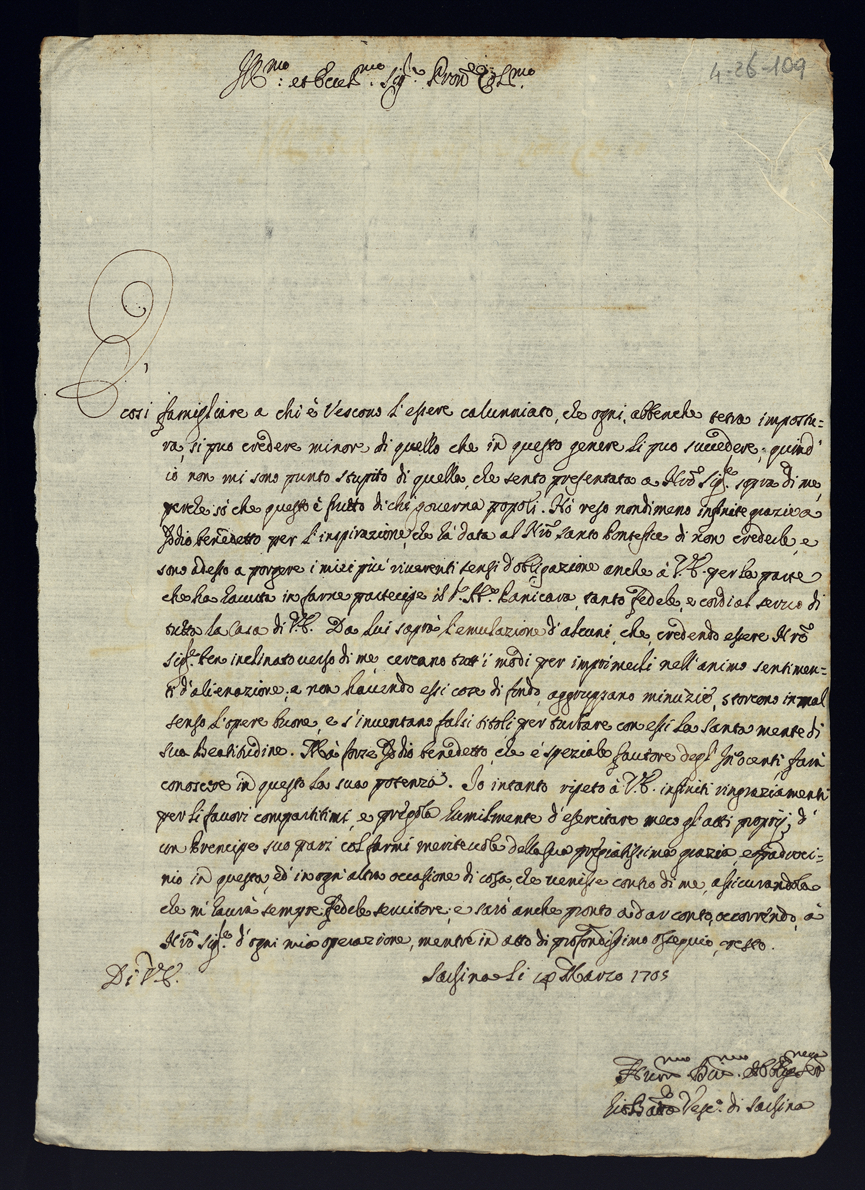 Ill:mo et Ecc.mo Sig.r Pron Col.mo
4-26-109
È così famigliare a chi è Vescovo l'essere calunniato, che ogni, abbenche tetra impostu=
ra, si può credere minore di quello che in questo genere li può succedere; quind'
io non mi sono punto stupito di quella, che sento presentata a Nro Sig.re sopra di me,
perche so che questo è frutto di chi governa popoli. Hò reso nondimeno infinite grazie a
Iddio benedetto per l'inspirazione, che hà data al Nro Santo Pontefice di non crederle, e
sono adesso a porgere i miei più riverenti sensi d'obligazione anche à V.E. per la parte
che ha havuta in farne partecipe il Ranicara, tanto fedele, e cordial servo di
tutta la Casa di V.E. Da lui saprà l'emulazione d'alcuni, che credendo essere Nro
Sig.re ben inclinato verso di me, cercano tutt'i modi per imprimerli nell'animo sentimen=
ti d'alienazione; e non havendo essi cose di fondo, aggruppano minuzie, storcono in mal
senso l'opere buone, e s'inventano falsi titoli per turbare con essi la santa mente di
sua Beatitudine. Mà forse Iddio benedetto, che è speziale fautore degl'Inocenti, farà
conoscere in questo la sua potenza. Io intanto ripeto à V.E. infiniti ringraziamenti
per li favori compartitimi, e priegola humilmente d'esercitare meco gl'atti proprij d'
un Prencipe suo pari col farmi meritevole della sua pregiatissima grazia, e padroci=
nio in questa, ed' in ogni altra occasione di cosa, che venisse contro di me, assicurandola
che m'haurà sempre fedele servitore; e sarò anche pronto a dar conto, occorrendo, à
Nro Sig.re d'ogni mia operazione, mentre in atto di profondissimo ossequio, resto.
Di V.E.
Sarsina li Marzo 1705
Hum.mo Obblig.mo
Gio Batta Vesc.o di Sarsina